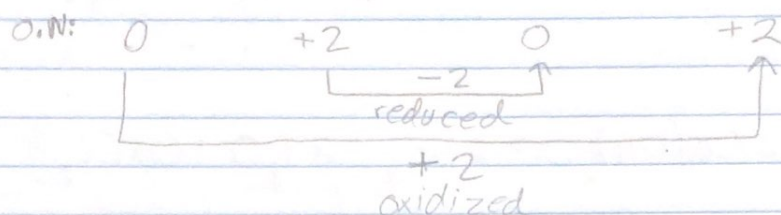 O.N: 0 +2 0 +2
-2
reduced
+2
oxidized